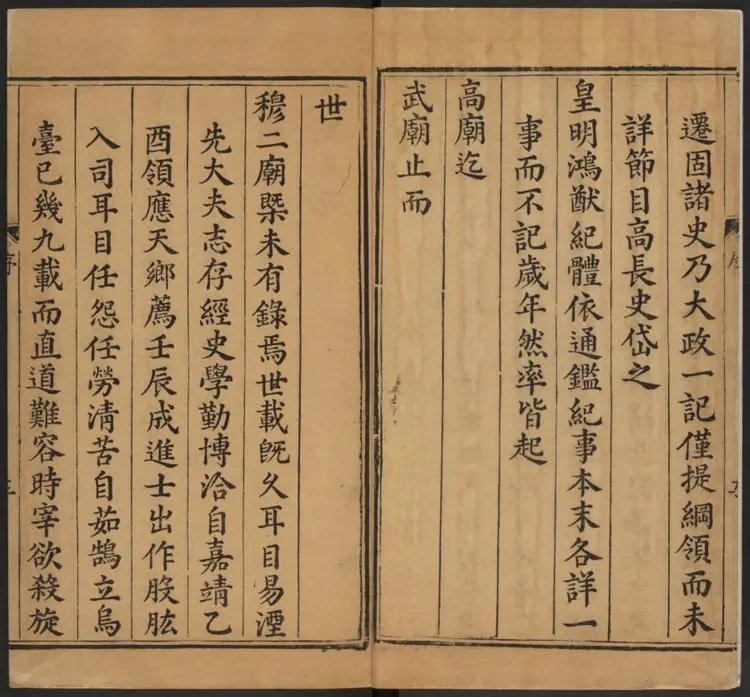 遷固諸史乃大政一記僅提綱領而未
詳節目高長史岱之
皇明鴻猷紀體依通鑑紀事本末各詳一
事而不記歲年然率皆起
高廟迄
武廟止而
世
穆二廟槩未有錄焉世載旣久耳目易湮
先大夫志存經史學勤博洽自嘉靖乙
酉領應天鄉薦壬辰成進士出作股肱
入司耳目任怨任勞清苦自茹鵠立烏
臺已幾九載而直道難容時宰欲殺旋
序